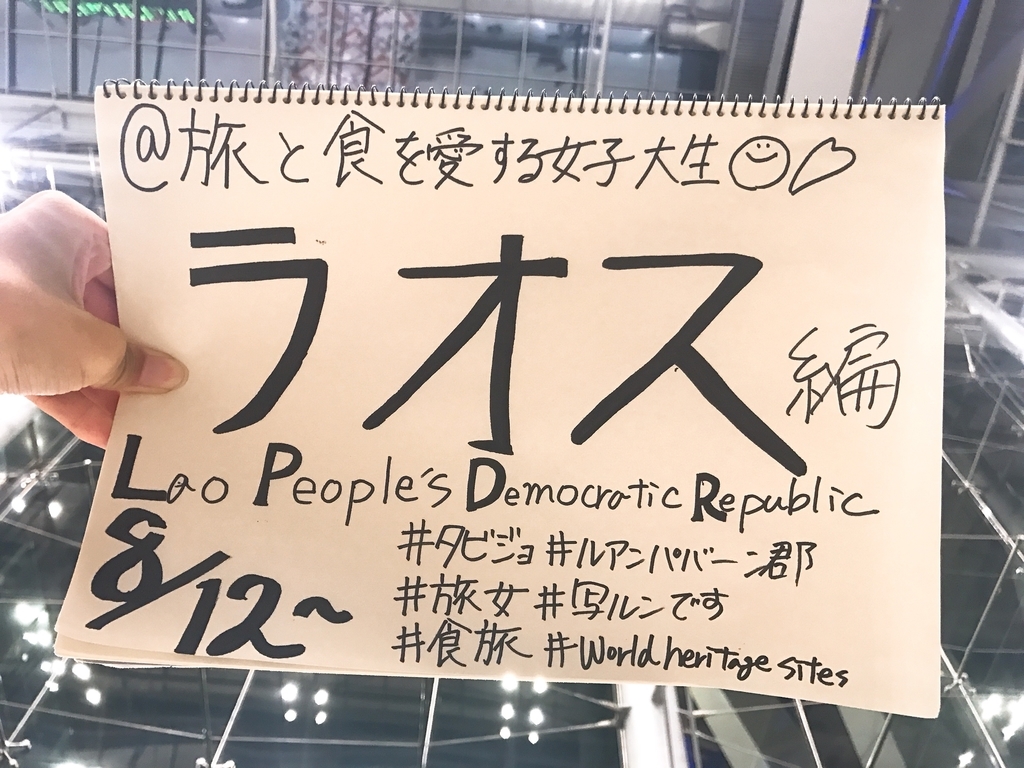 @旅と食を愛する女子大生
ラオス編
Lao People's Democratic Republic
8/12~
#タビジョ #ルアンパバーン郡
#旅女 #写ルンです
#食旅 #World heritage sites